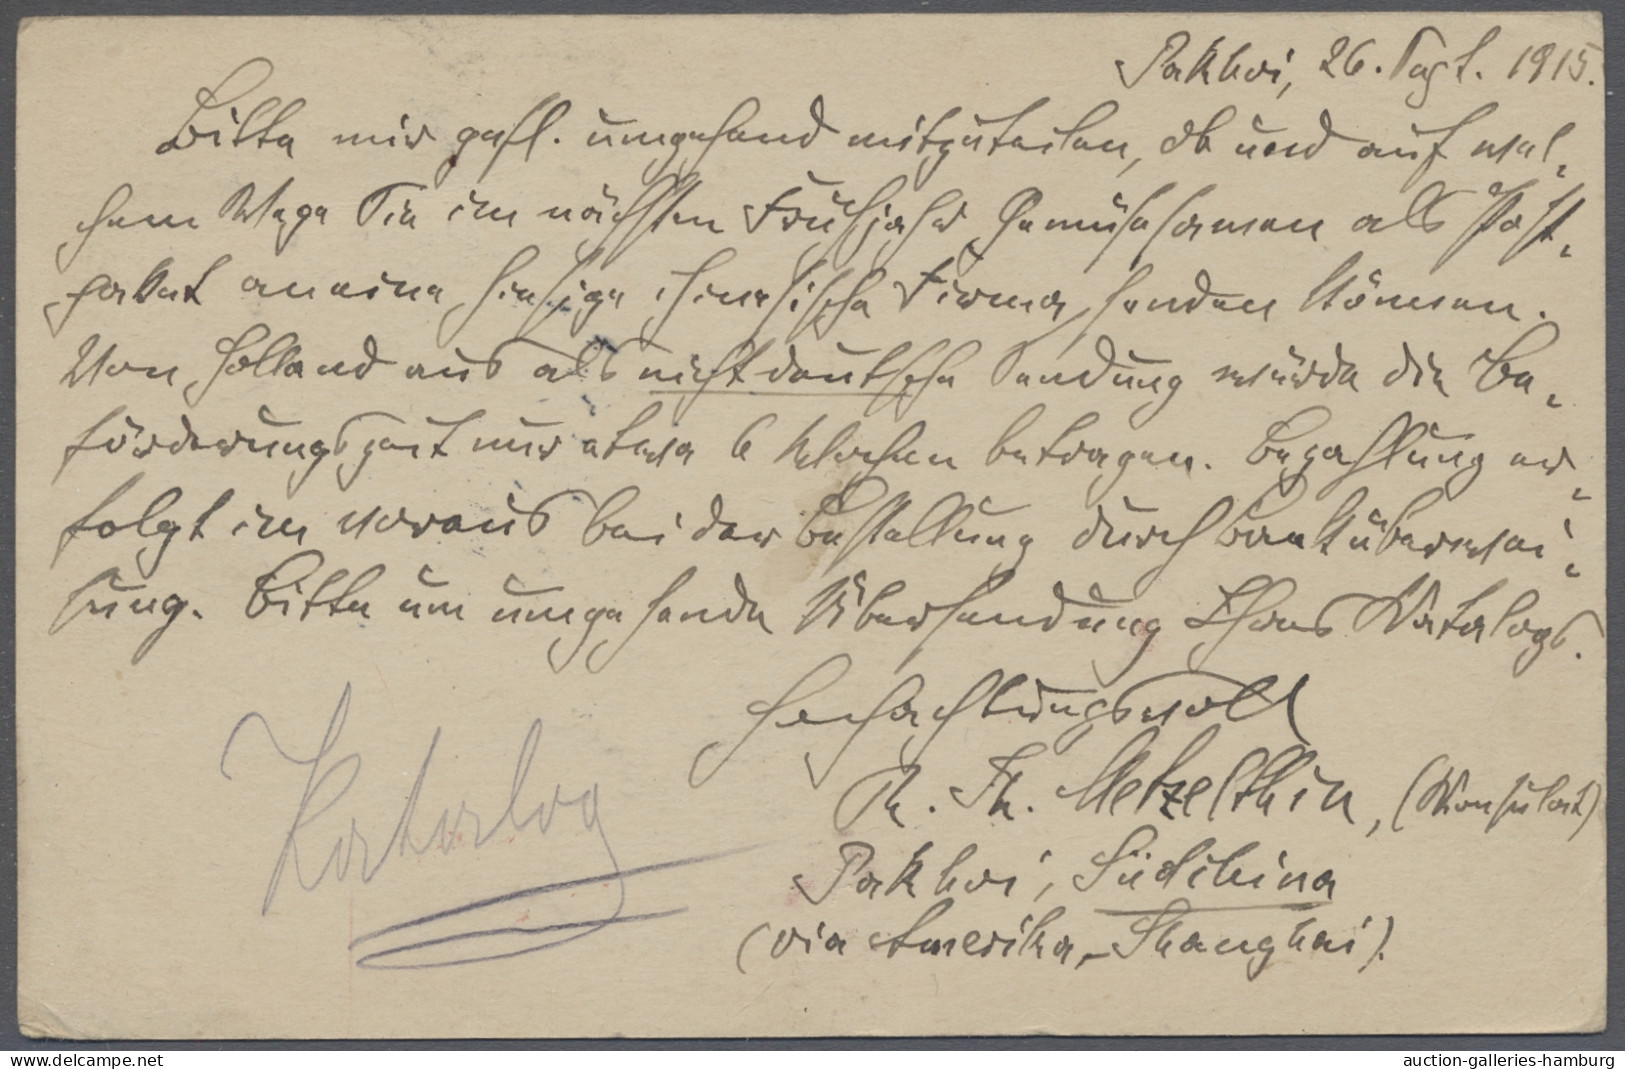 Pakhoi, 26. Sept. 1915.
Bitte mir gefl. umgehend mitzuteilen, ob und auf wel-
chem Wege Sie im nächsten Frühjahr Gemüsesamen als Post-
paket an eine hiesige chinesische Firma senden können.
Von Holland aus als nicht deutsche Sendung würde die Be-
förderungszeit nur etwa 6 Wochen betragen. Bezahlung er-
folgt im voraus bei der Bestellung durch Banküberwei-
sung. Bitte um umgehende Übersendung Ihres Katalogs.
Hochachtungsvoll
R. Th. Metzelthin, (Konsulat)
Pakhoi, Südchina
(via Amerika, - Shanghai).
Katalog
delcampe.net
auction-galleries-hamburg